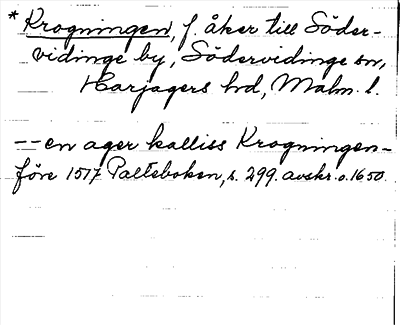 * Krogningen, f. åker till Söder-
vidinge by, Södervidinge sn,
Harjagers hd, Malm. l.
-- en ager kalliss Krogningen -
före 1517 Palteboken, s. 299. avskr. o. 1650.